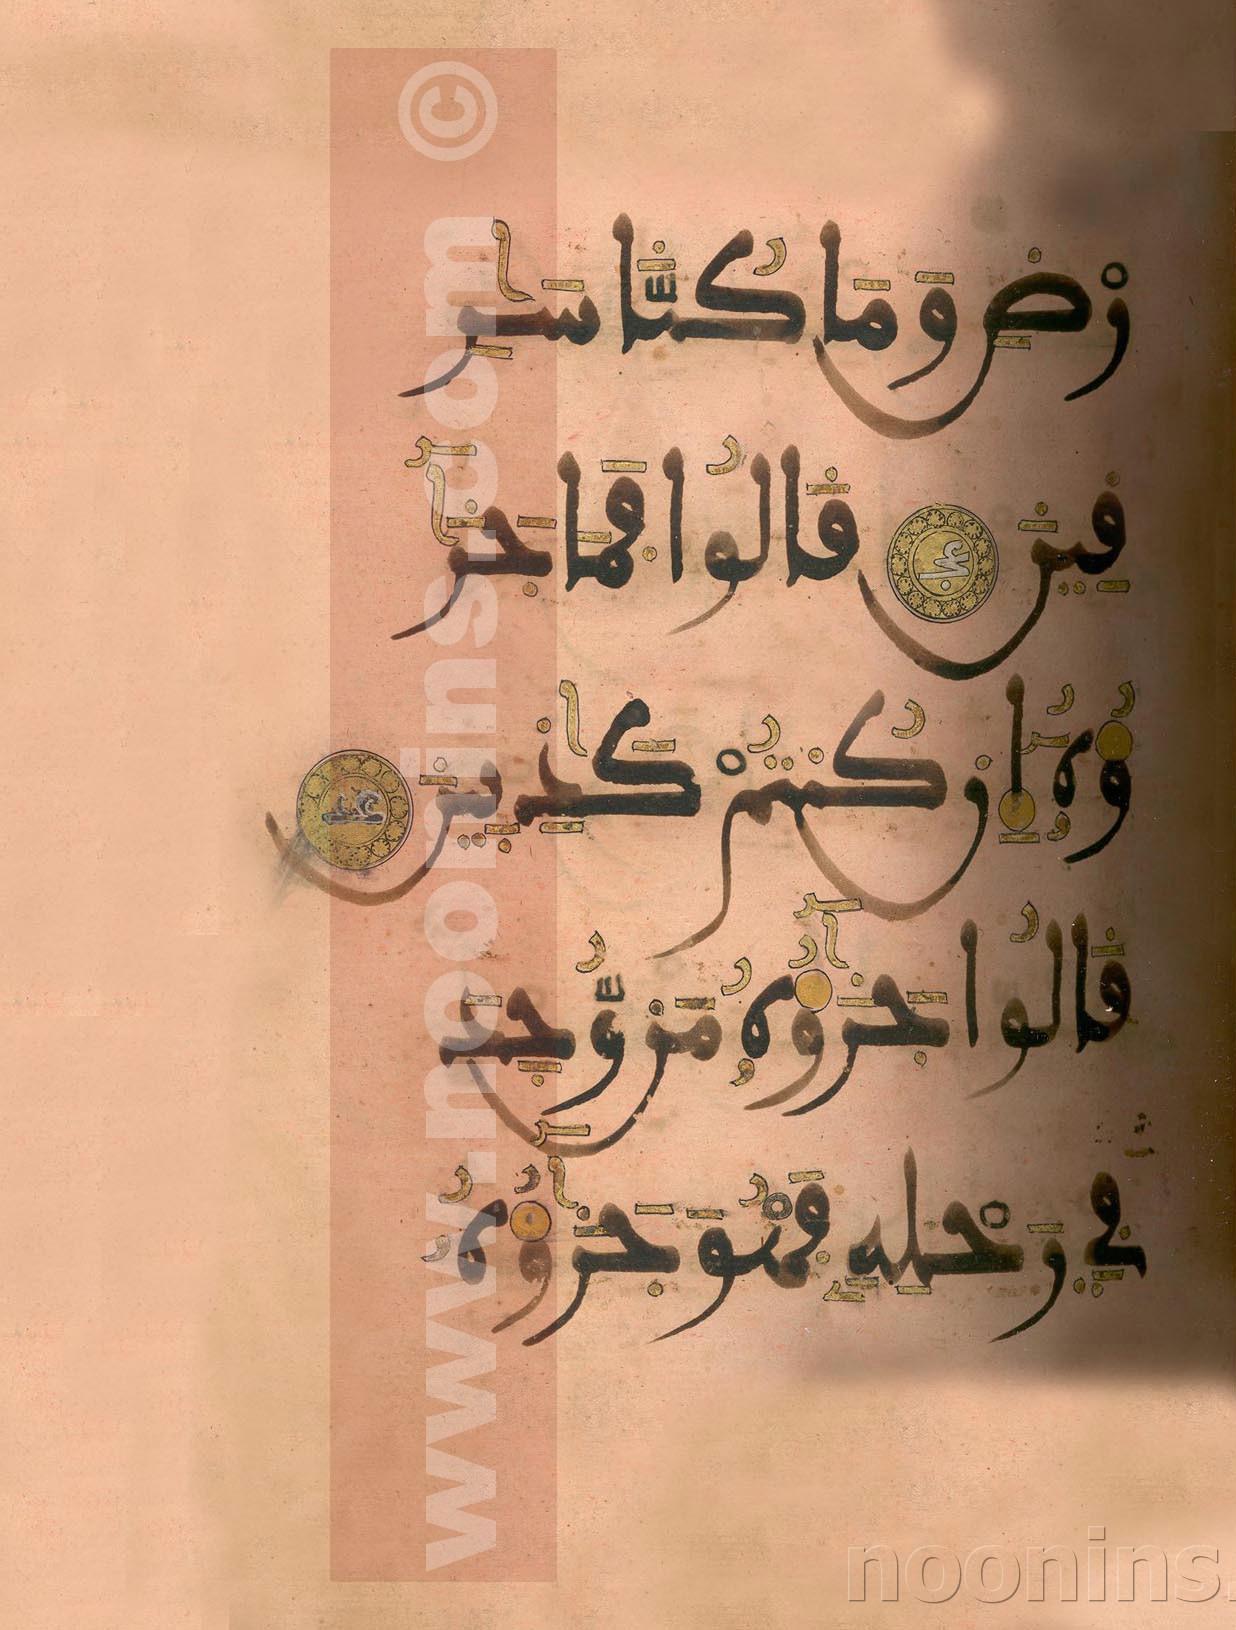 رْضِ وَمَا كُنَّا سَٰرِ
فِينَ قَالُوا فَمَا جَزَٰٓ
ؤُهُۥٓ إِن كُنتُمْ كَٰذِبِينَ
قَالُوا جَزَٰٓؤُهُۥ مَن وُّجِدَ
فِي رَحْلِهِۦ فَهُوَ جَزَٰٓؤُهُۥ
www.noonins.com ©
noonins.